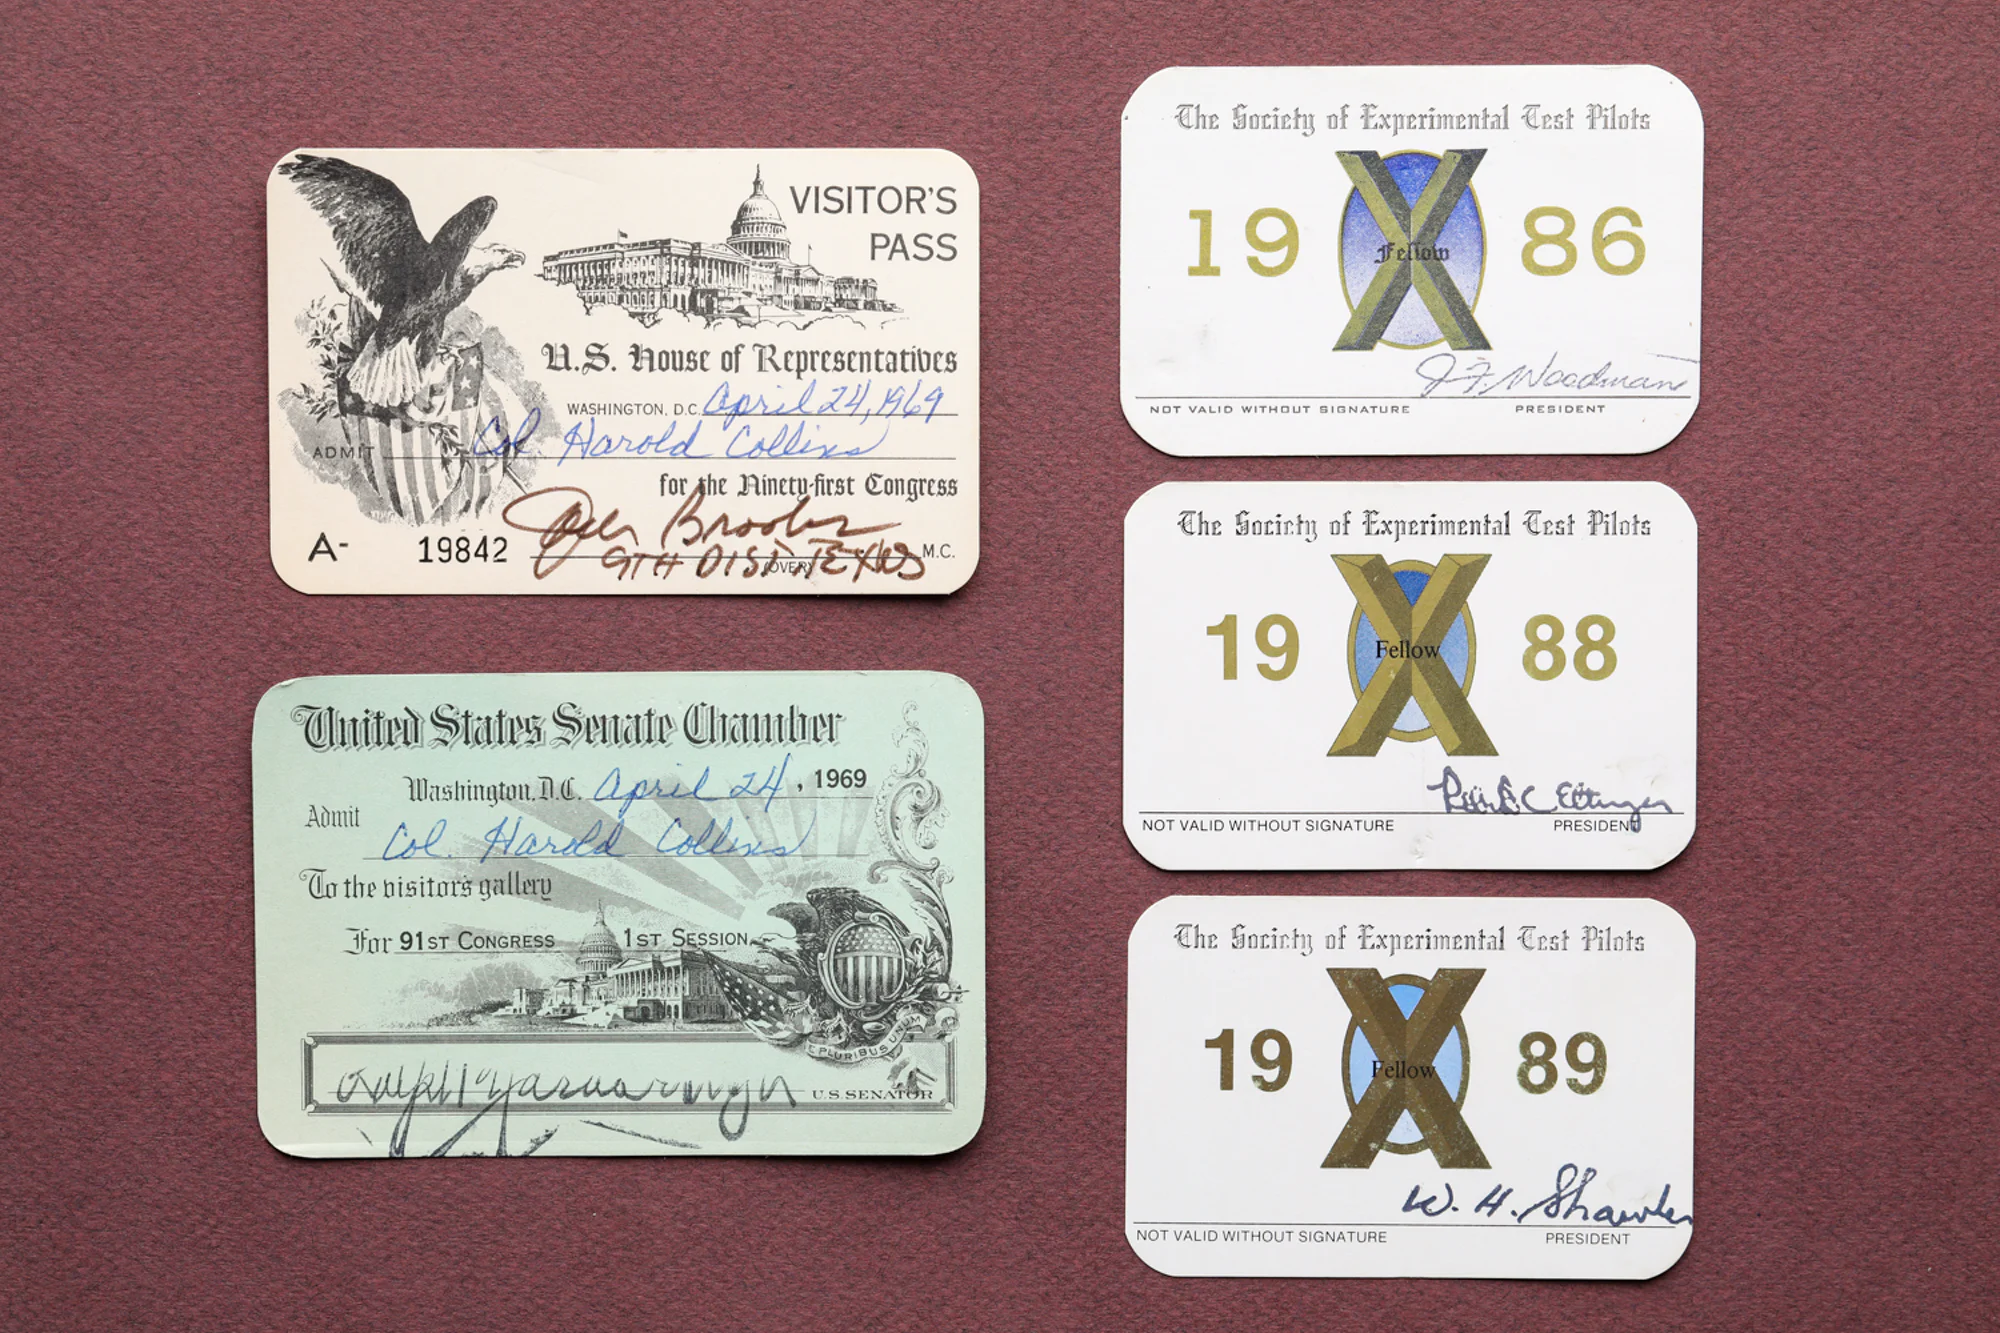 VISITOR'S
PASS
U.S. House of Representatives
WASHINGTON, D.C. April 24, 1969
ADMIT Col Harold Collins
for the Ninety-first Congress
Jack Brooks
A- 19842 9TH DIST. TEXAS M.C.
(OVER)
United States Senate Chamber
Washington, D.C. April 24, 1969
Admit
Col. Harold Collins
To the visitor's gallery
For 91ST CONGRESS 1ST SESSION
E PLURIBUS UNUM
Ralph Yarborough U.S. SENATOR
The Society of Experimental Test Pilots
19 Fellow 86
J F Woodman
NOT VALID WITHOUT SIGNATURE PRESIDENT
The Society of Experimental Test Pilots
19 Fellow 88
NOT VALID WITHOUT SIGNATURE PRESIDENT
The Society of Experimental Test Pilots
19 Fellow 89
W. H. Shawler
NOT VALID WITHOUT SIGNATURE PRESIDENT